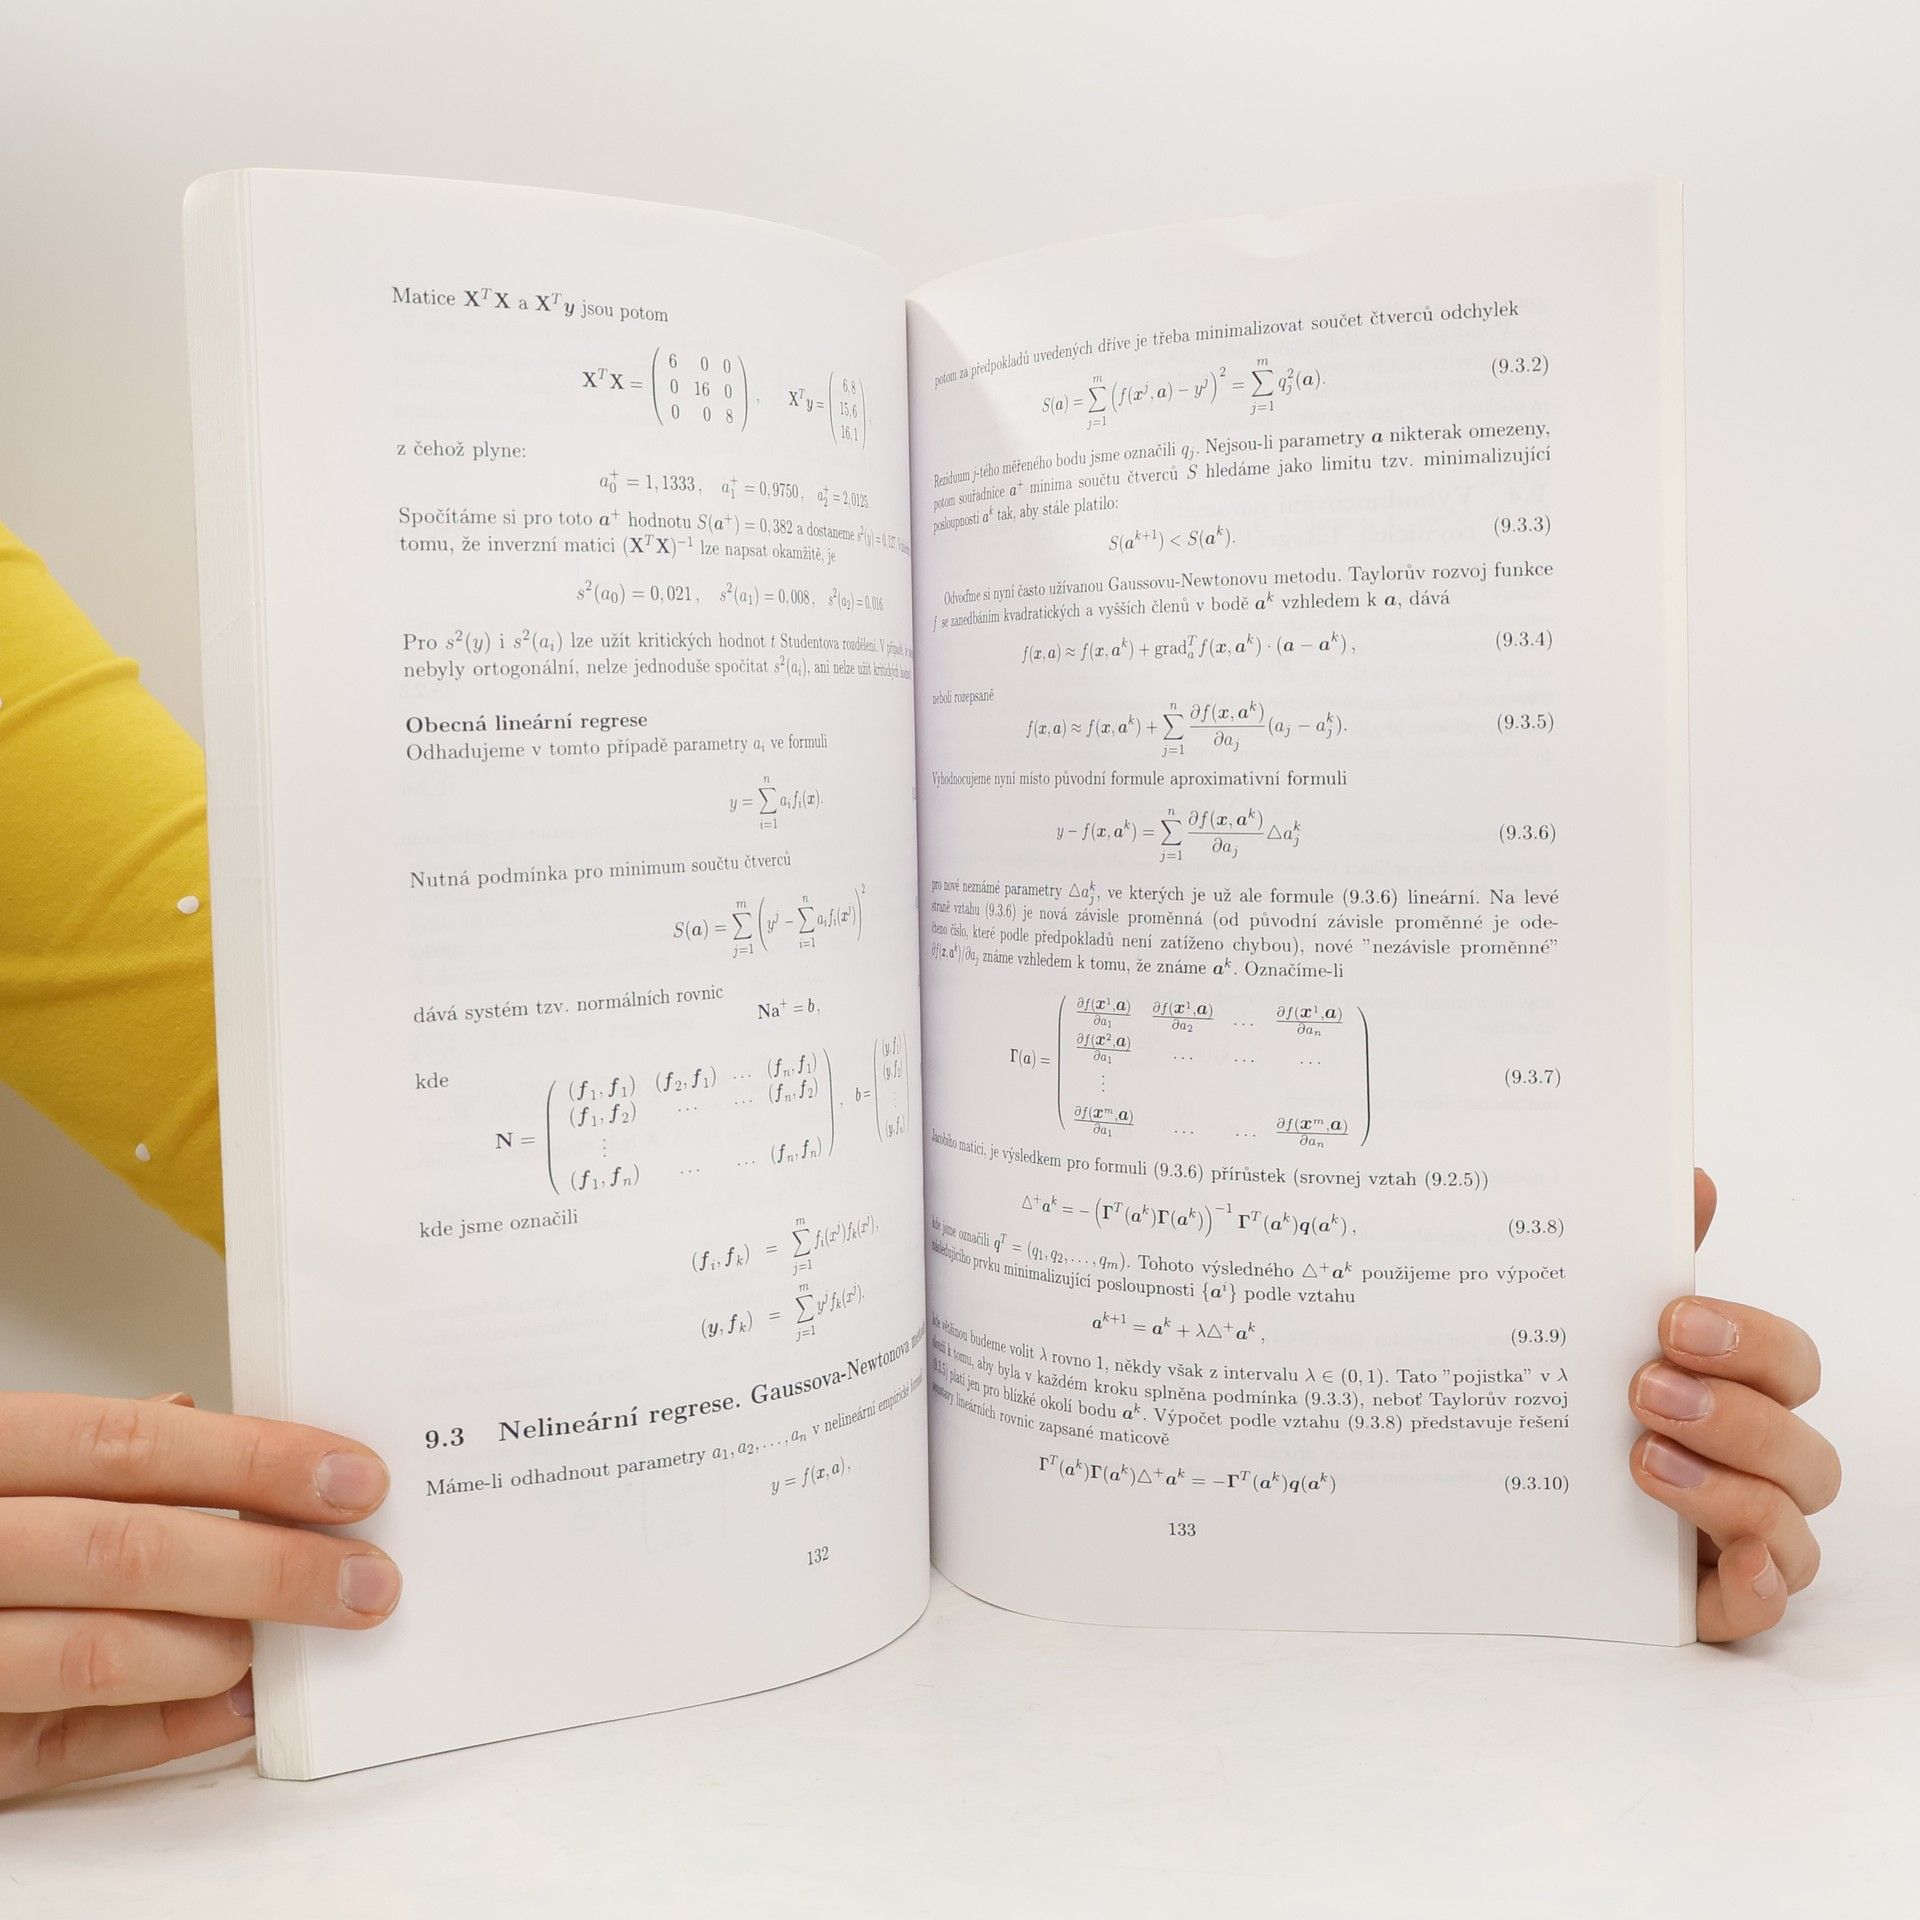 Matice XᵀX a Xᵀy jsou potom
XᵀX = ( 6 0 0
0 16 0
0 0 8 ) , Xᵀy = ( 6,8
15,6
16,1 ) ,
z čehož plyne:
a₀⁺ = 1,1333 , a₁⁺ = 0,9750 , a₂⁺ = 2,0125.
Spočítáme si pro toto a⁺ hodnotu S(a⁺) = 0.382 a dostaneme s²(y) = 0.127.
tomu, že inverzní matici (XᵀX)⁻¹ lze napsat okamžitě, je
s²(a₀) = 0,021 , s²(a₁) = 0,008 , s²(a₂) = 0,016.
Pro s²(y) i s²(aᵢ) lze užít kritických hodnot t Studentova rozdělení. V
nebyly ortogonální, nelze jednoduše spočítat s²(aᵢ), ani nelze užít kritických
Obecná lineární regrese
Odhadujeme v tomto případě parametry aᵢ ve formuli
y = ∑ᵢ₌₁ⁿ aᵢfᵢ(x).
Nutná podmínka pro minimum součtu čtverců
S(a) = ∑ⱼ₌₁ᵐ (yʲ − ∑ᵢ₌₁ⁿ aᵢfᵢ(xʲ))²
dává systém tzv. normálních rovnic
Na⁺ = b,
kde
N = ( (f₁, f₁) (f₂, f₁) … (fₙ, f₁)
(f₁, f₂) … … (fₙ, f₂)
⋮
(f₁, fₙ) … … (fₙ, fₙ) ) , b = ( (y, f₁)
(y, f₂)
⋮
(y, fₙ) )
kde jsme označili
(fᵢ, fₖ) = ∑ⱼ₌₁ᵐ fᵢ(xʲ)fₖ(xʲ),
(y, fₖ) = ∑ⱼ₌₁ᵐ yʲfₖ(xʲ).
9.3 Nelineární regrese. Gaussova-Newtonova
Máme-li odhadnout parametry a₁, a₂, …, aₙ v nelineární empirické
y = f(x, a),
132
potom za předpokladů uvedených dříve je třeba minimalizovat součet čtverců odchylek
S(a) = ∑ⱼ₌₁ᵐ (f(xʲ, a) − yʲ)² = ∑ⱼ₌₁ᵐ qⱼ²(a). (9.3.2)
Reziduum j-tého měřeného bodu jsme označili qⱼ. Nejsou-li parametry a nikterak omezeny,
potom souřadnice a⁺ minima součtu čtverců S hledáme jako limitu tzv. minimalizující
posloupnosti aᵏ tak, aby stále platilo:
S(aᵏ⁺¹) < S(aᵏ). (9.3.3)
Odvoďme si nyní často užívanou Gaussovu-Newtonovu metodu. Taylorův rozvoj funkce
f se zanedbáním kvadratických a vyšších členů v bodě aᵏ vzhledem k a, dává
f(x, a) ≈ f(x, aᵏ) + gradₐᵀ f(x, aᵏ) · (a − aᵏ) , (9.3.4)
neboli rozepsaně
f(x, a) ≈ f(x, aᵏ) + ∑ⱼ₌₁ⁿ ∂f(x, aᵏ)/∂aⱼ (aⱼ − aⱼᵏ). (9.3.5)
Vyhodnocujeme nyní místo původní formule aproximativní formuli
y − f(x, aᵏ) = ∑ⱼ₌₁ⁿ ∂f(x, aᵏ)/∂aⱼ △aⱼᵏ (9.3.6)
pro nové neznámé parametry △aⱼᵏ, ve kterých je už ale formule (9.3.6) lineární. Na levé
straně vztahu (9.3.6) je nová závisle proměnná (od původní závisle proměnné je ode-
čteno číslo, které podle předpokladů není zatíženo chybou), nové ”nezávisle proměnné”
∂f(x, aᵏ)/∂aⱼ známe vzhledem k tomu, že známe aᵏ. Označíme-li
Γ(a) = ( ∂f(x¹,a)/∂a₁ ∂f(x¹,a)/∂a₂ … ∂f(x¹,a)/∂aₙ
∂f(x²,a)/∂a₁ … … …
⋮
∂f(xᵐ,a)/∂a₁ … … ∂f(xᵐ,a)/∂aₙ ) (9.3.7)
Jacobiho matici, je výsledkem pro formuli (9.3.6) přírůstek (srovnej vztah (9.2.5))
△⁺aᵏ = −(Γᵀ(aᵏ)Γ(aᵏ))⁻¹ Γᵀ(aᵏ)q(aᵏ) , (9.3.8)
kde jsme označili qᵀ = (q₁, q₂, …, qₘ). Tohoto výsledného △⁺aᵏ použijeme pro výpočet
následujícího prvku minimalizující posloupnosti {aⁱ} podle vztahu
aᵏ⁺¹ = aᵏ + λ△⁺aᵏ , (9.3.9)
kde většinou budeme volit λ rovno 1, někdy však z intervalu λ ∈ (0, 1). Tato ”pojistka” v λ
slouží k tomu, aby byla v každém kroku splněna podmínka (9.3.3), neboť Taylorův rozvoj
(9.3.5) platí jen pro blízké okolí bodu aᵏ. Výpočet podle vztahu (9.3.8) představuje řešení
soustavy lineárních rovnic zapsané maticově
Γᵀ(aᵏ)Γ(aᵏ)△⁺aᵏ = −Γᵀ(aᵏ)q(aᵏ) (9.3.10)
133